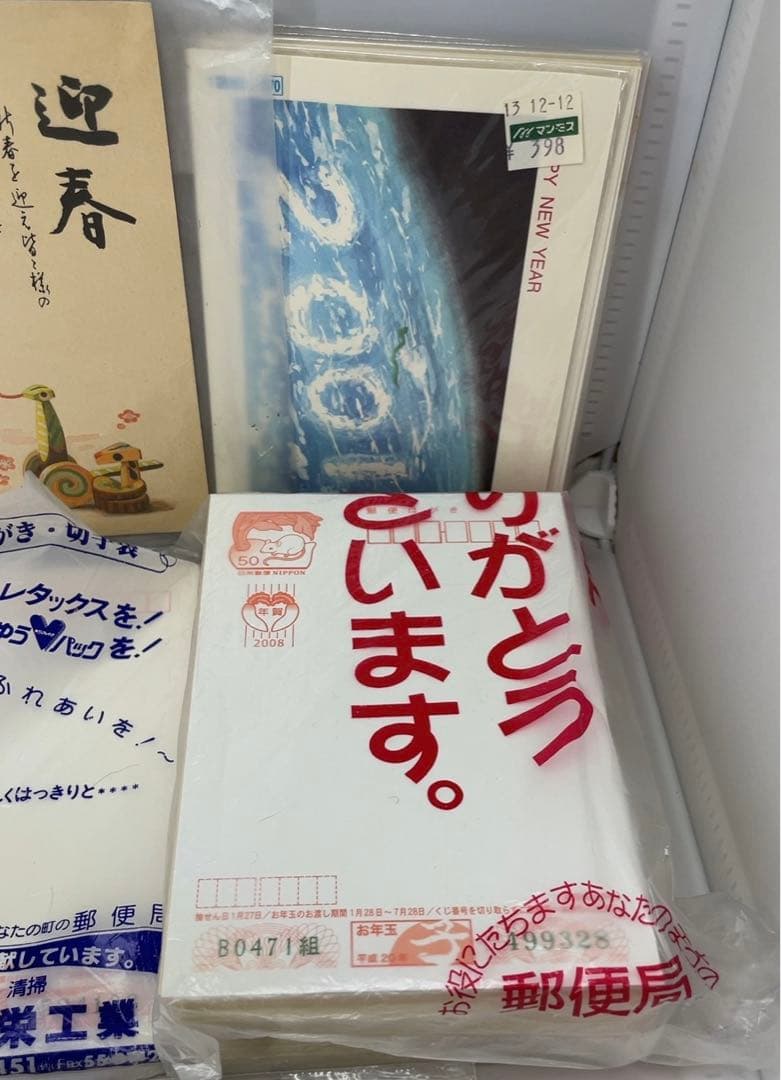 迎春
春を迎え皆々様の
13 12-12
スミマンパン
¥398
PY NEW YEAR
2001
がき・切手袋
レタックスを!
ゆう パックを!
ふれあいを!〜
くはっきりと****
なたの町の郵便局
献しています。
清掃
栄工業
151
郵便はがき
50
日本郵便 NIPPON
年賀
2008
りがとう
ざいます。
抽せん日1月27日/お年玉のお渡し期間1月28日〜7月28日/くじ番号を切り取ら
B0471組
お年玉
平成20年
499328
お役にたちますあなたの
郵便局